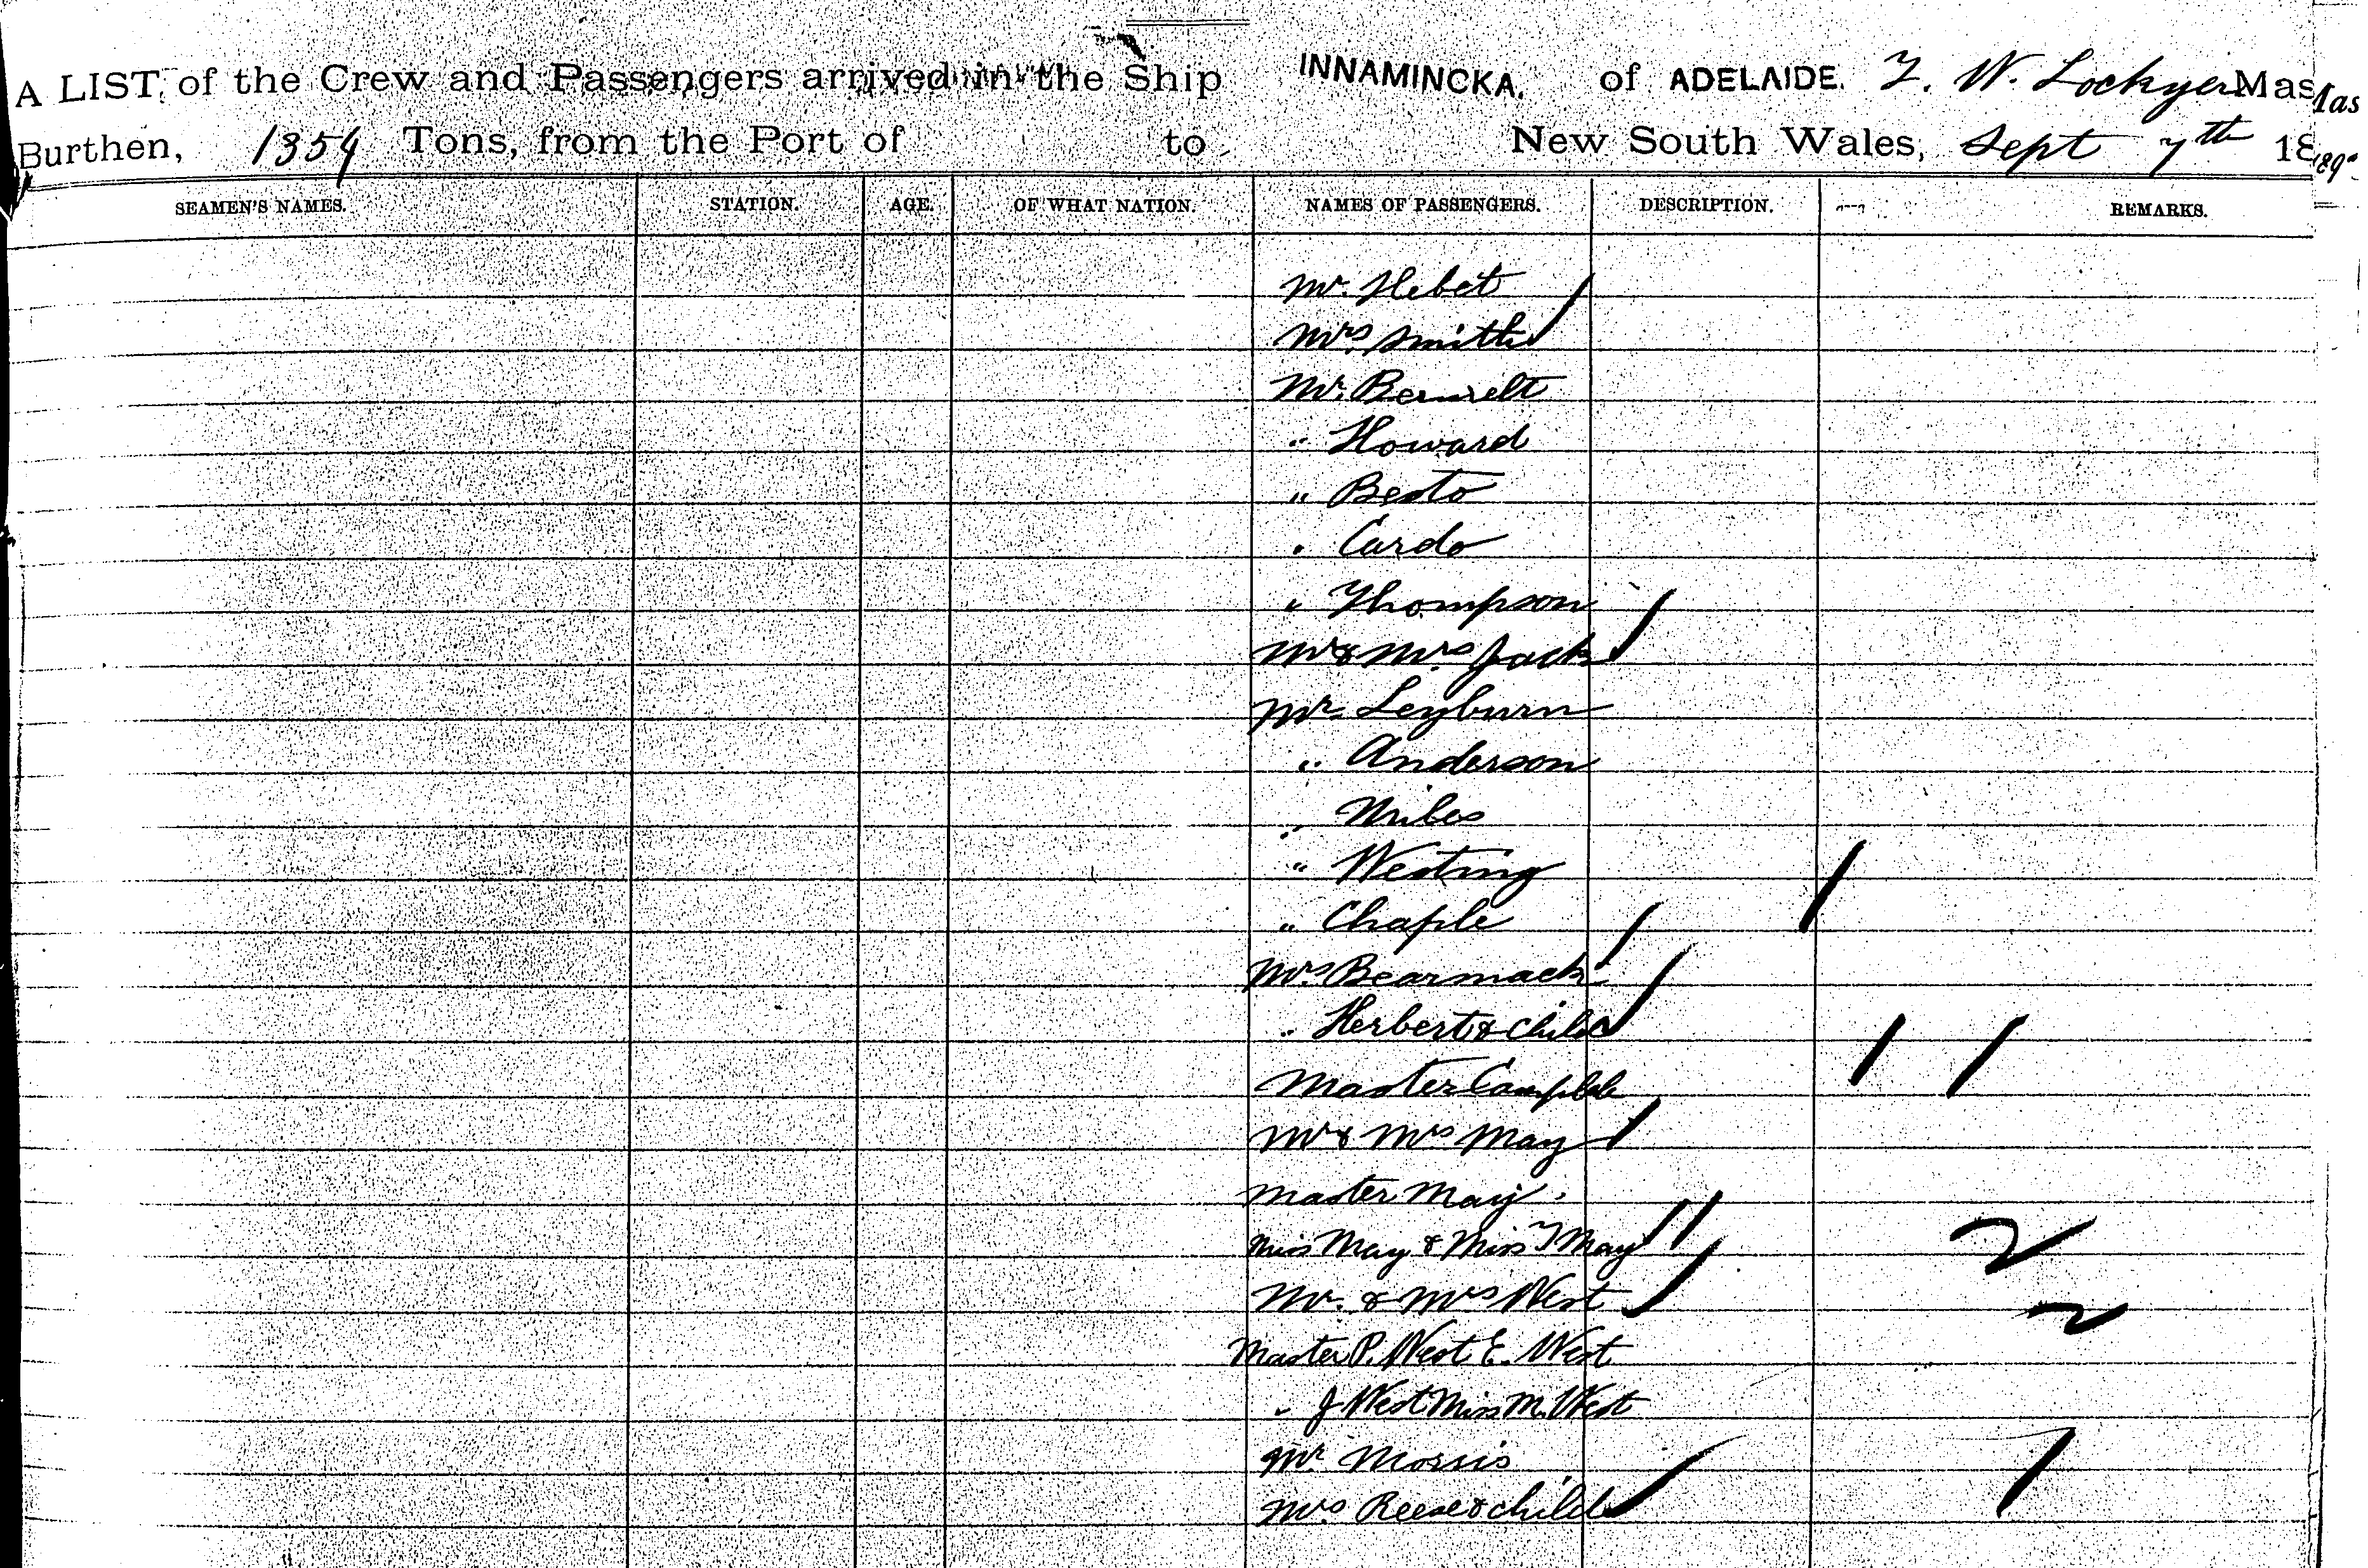 A LIST of the Crew and Passengers arrived in the Ship INNAMINCKA. of ADELAIDE. F. W. Lockyer Mas
Burthen, 1354 Tons, from the Port of to New South Wales, Sept 7th 18
SEAMEN'S NAMES. STATION. AGE. OF WHAT NATION. NAMES OF PASSENGERS. DESCRIPTION. REMARKS.
Mr. Hebet
Mrs Smith
Mr. Bennett
" Howard
" Besto
" Cardo
" Thompson
Mr & Mrs Jack
Mr. Leyburn
" Anderson
" Miles
" Westing
" Chaple
Mrs Bearmach
" Herbert & child
Master
Mr & Mrs May
Master May.
Miss May & Miss T May
2
Mr. & Mrs West
2
Master P. West E. West
" J West Miss M. West
Mr Morris
Mrs Reese & child